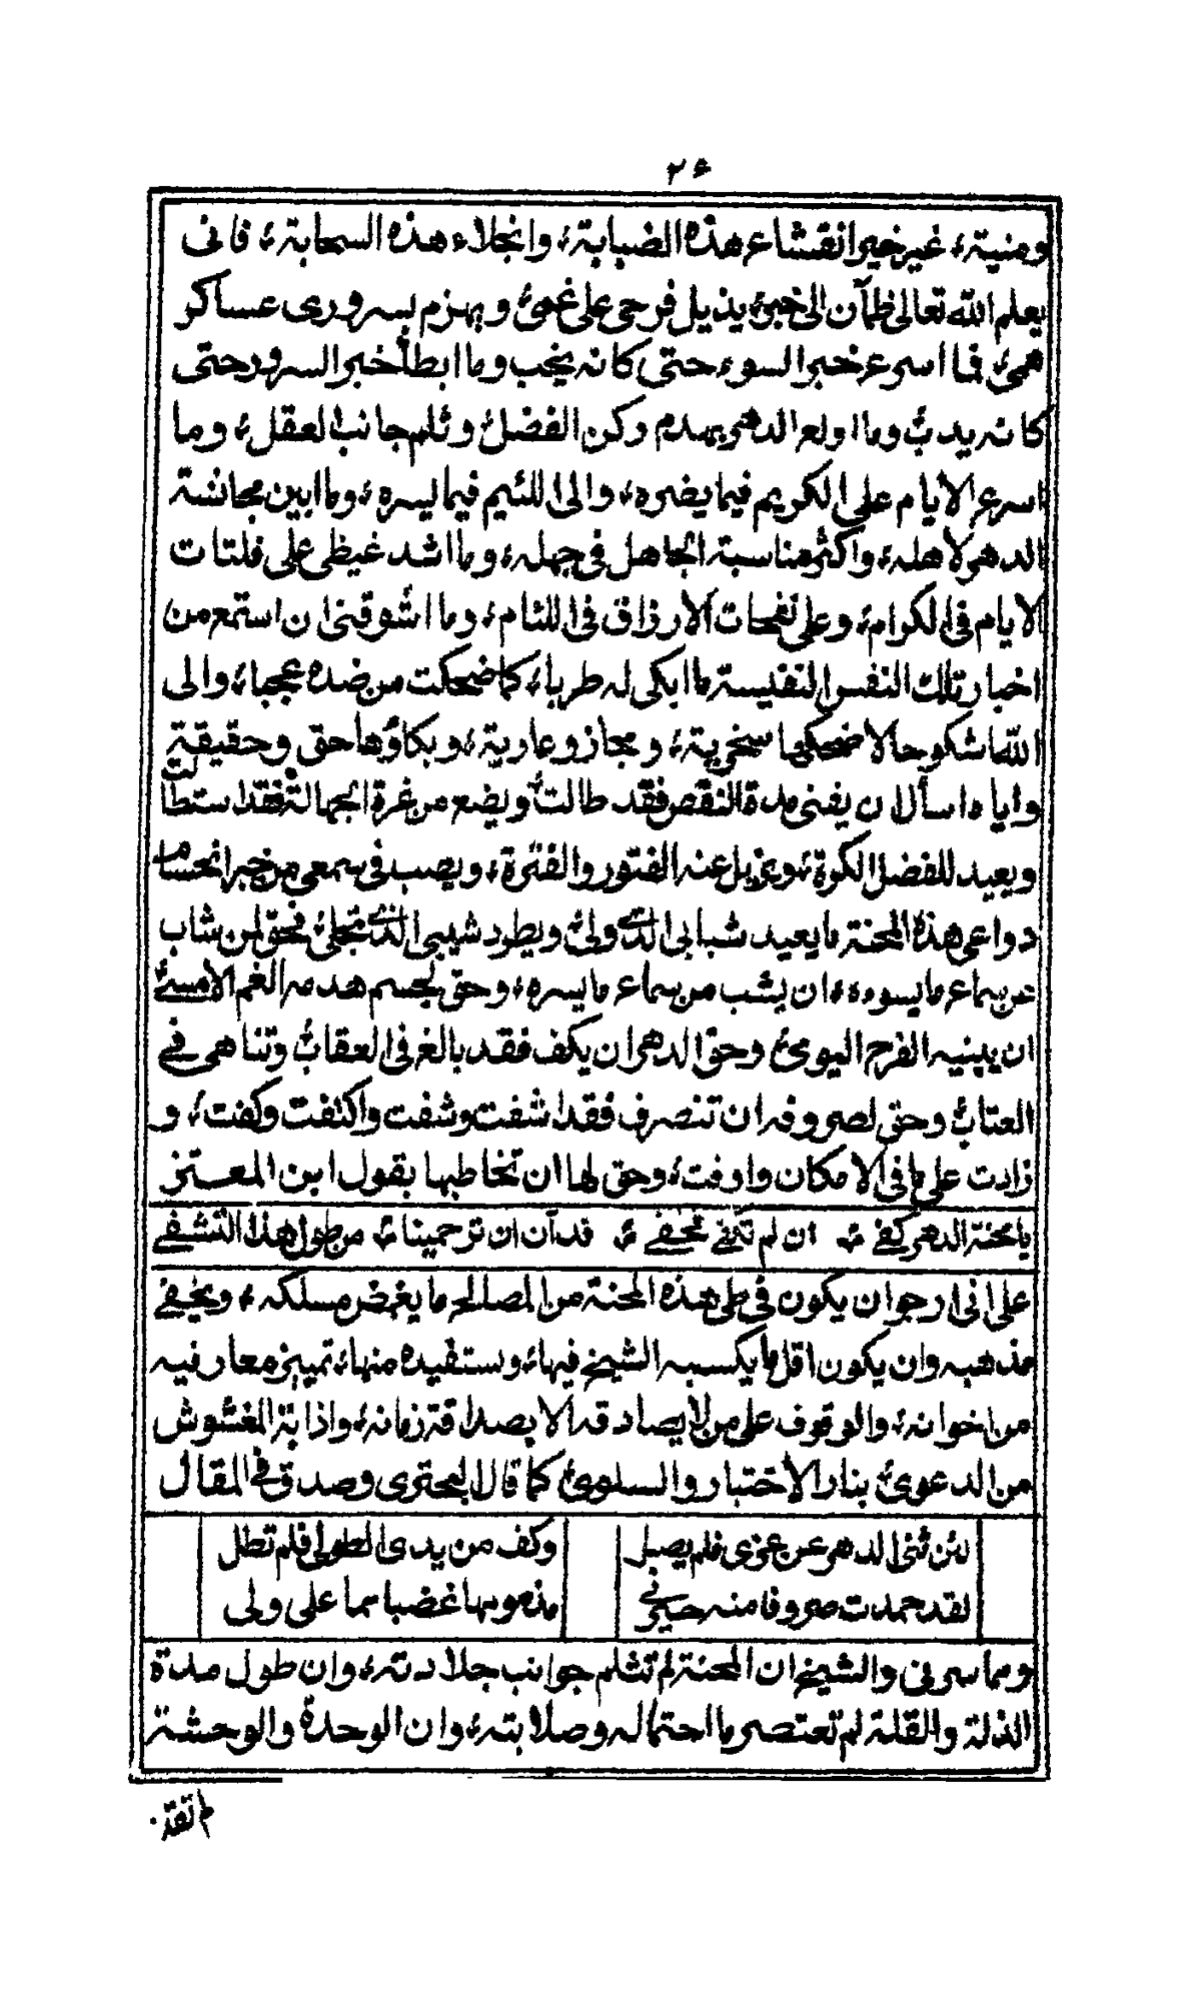 ٢٤
ومنيته، غير خبر انقشاع هذه الضبابة، وانجلاء هذه السحابة، فانى
يعلم الله تعالى ظمآن الى خبر، يذيل فرحى على غمى، ويهزم بسرورى عساكر
همى، فما اسرع خبر السوء حتى كانه يخب وما ابطأ خبر السرور حتى
كانه يدب، وما اولع الدهر بهدم ركن الفضل، وثلم جانب العقل، وما
اسرع الايام على الكريم فيما يضره، والى اللئيم فيما يسره، وما ابين مجانسة
الدهر لاهله، واكثر مناسبة الجاهل فى جهله، وما اشد غيظى على فلتات
الايام فى الكرام، وعلى نفحات الارزاق فى اللئام، وما اشوقنى ان استمع من
اخبار تلك النفس النفيسة ما ابكى له طربا، كما ضحكت من ضده عجبا، والى
الله اشكو حالا ضحكها سخرية، ومجاز وعارية، وبكاؤها حق وحقيقة
واياه اسأل ان يفنى مدة النقص فقد طالت، ويضع من غرة الجهالة فقد استطالت
ويعيد للفضل الكرة، ويزيل عنه الفتور والفترة، ويصب فى سمعى من خبر انحسام
دواعى هذه المحنة ما يعيد شبابى الذى ولى، ويطرد شيبى الذى تجلى، فحق لمن شاب
من سماع ما يسوءه، ان يشب من سماع ما يسره، وحق لجسم هدمه الغم الامسى
ان يبنيه الفرح اليومى، وحق الدهر ان يكف فقد بالغ فى العقاب، وتناهى فى
العتاب، وحق لصروفه ان تنصرف فقد اشفت وشفت واكتفت وكفت، و
زادت على ما فى الامكان واوفت، وحق لها ان تخاطبها بقول ابن المعتز
يا محنة الدهر كفى، ان لم تكفى فخفى، قد آن ان ترحمينا، من طول هذا التشفى
على انى ارجو ان يكون فى طى هذه المحنة من المصالح ما يغمض مسلكه، ويخفى
مذهبه وان يكون اقل ما يكسبه الشيخ فيها، ويستفيده منها، تمييز معارفيه
من اخوانه، والوقوف على من لا يصادقه الا بصداقة زمانه، واذابة المغشوش
من الدعوى، بنار الاختبار والسلوى، كما قال البحترى وصدق فى المقال
لئن ثنى الدهر عن عزى فلم يصل وكف من يدى الطولى فلم تطل
لقد حمدت صروفا منه خبرنى مذمومها غضبا سما على ولى
ومما سرنى والشيخ ان المحنة لم تثلم جوانب جلادته، وان طول مدة
الذلة والقلة لم تعتصر ما احتماله وصلابته، وان الوحدة والوحشة